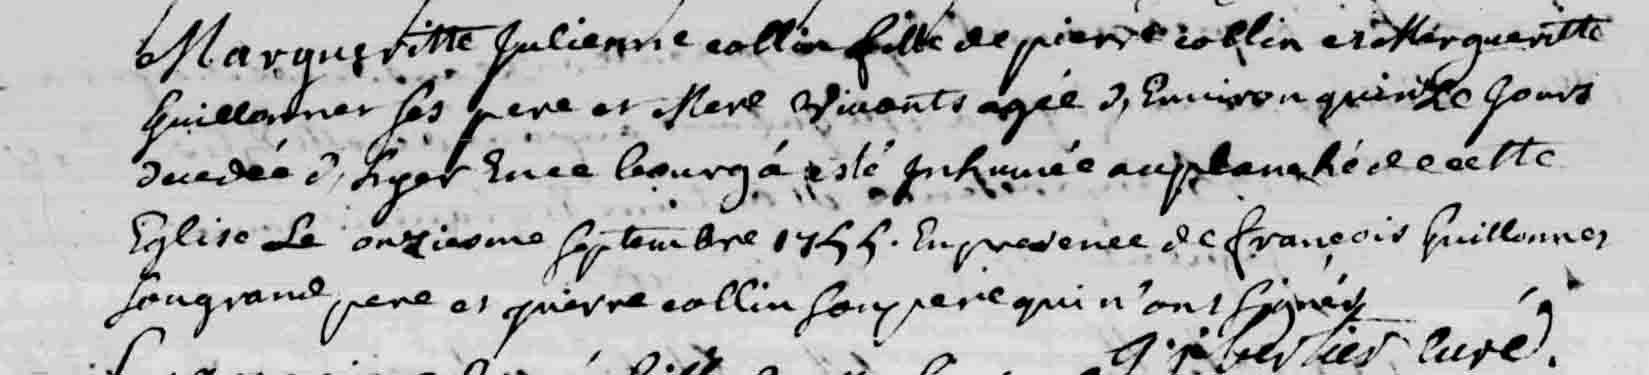 Margueritte Julienne collin fille de pierre collin et Margueritte
Guillonner ses pere et Mere vivants agée d, Environ quinze Jours
decedée d, hyer En ce bourg á esté Inhumée au planché de cette
Eglise Le onziesme Septembre 1755. En presence de françois Guillonner
son grand pere et pierre collin son pere qui n'ont signés
curé.